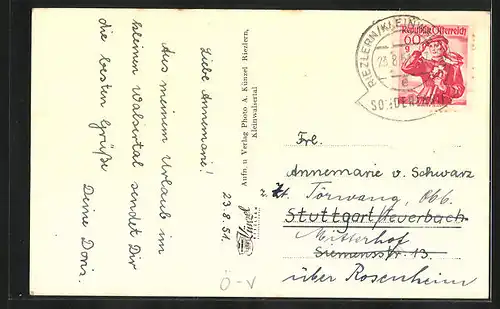 23.8.51.
Liebe Annemarie!
Aus meinem Urlaub im
kleinen Walsertal sendet Dir
die besten Grüße
Deine Doris.
Aufn. u Verlag Photo A. Künzel Riezlern,
Kleinwalsertal
Künzel
Ö-V
RIEZLERN/KLEIN
23.8
SONDER
Republik Österreich
60 g
Frl.
Annemarie v. Schwarz
z. Zt. Törwang, Obb.
Stuttgart/Feuerbach
Mitterhof
Siemensstr. 13.
über Rosenheim